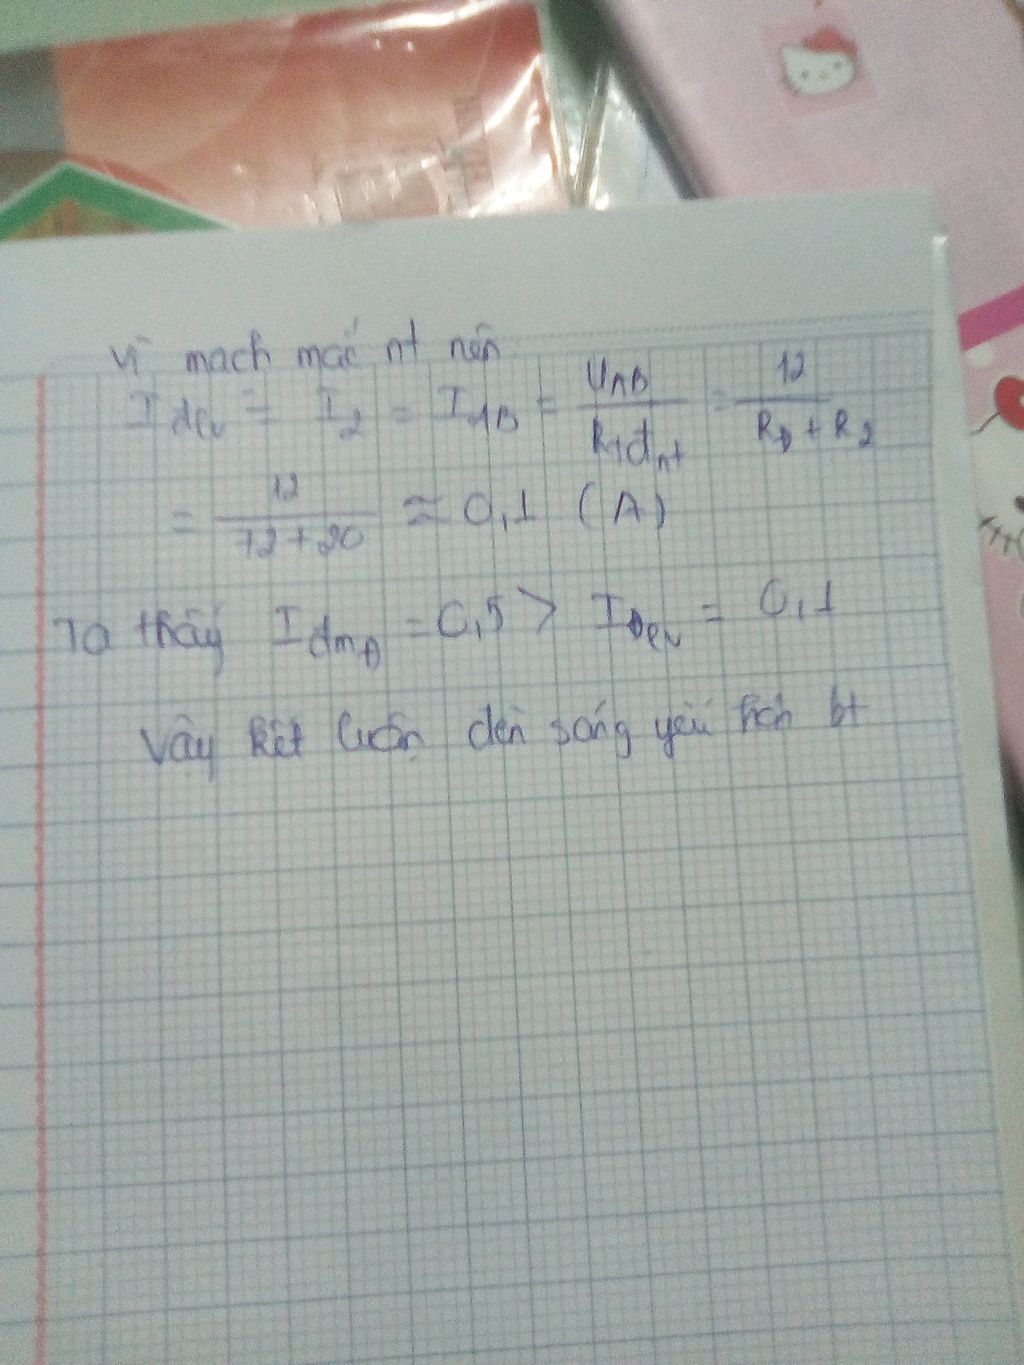 Vì mạch mắc nt nên
I đèn = I2 = IAB = UAB / Rtđnt = 12 / RĐ + R2
= 12 / 72 + 20 ≈ 0,1 (A)
Ta thấy IđmĐ = 0,5 > IĐèn = 0,1
Vậy kết luận đèn sáng yếu hơn bt